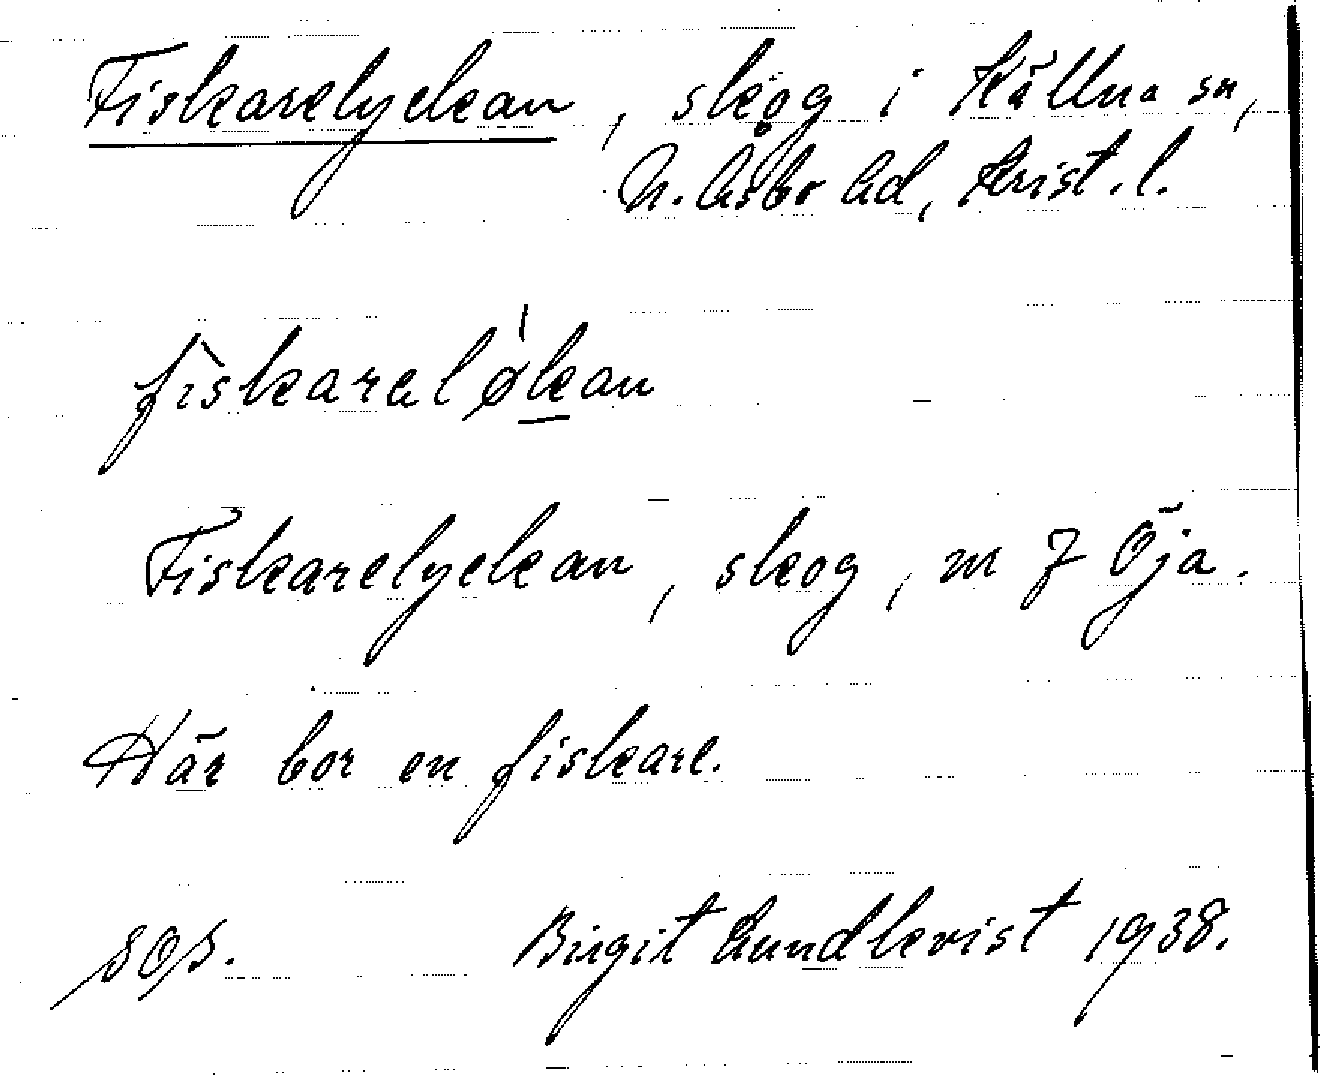 Fiskarelyckan, skog i Källna sn,
N. Åsbo hd, Krist. l.
fìskarelø̍kan
Fiskarelyckan, skog, m Z Öja.
Här bor en fiskare.
sos. Birgit Lundkvist 1938.